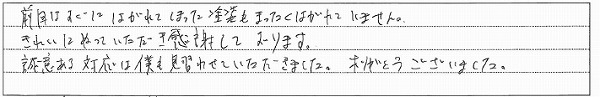 前回はすぐにはがれてしまった塗装もまったくはがれていません。
きれいにぬっていただき感謝しております。
誠意ある対応は僕も見習わせていただきました。ありがとうございました。